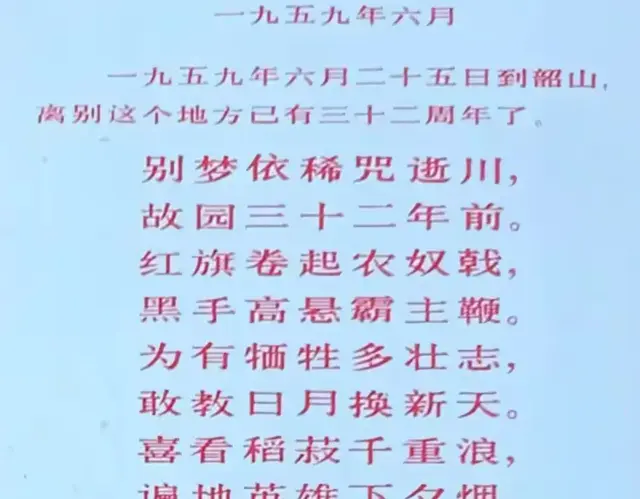 一九五九年六月
一九五九年六月二十五日到韶山,
离别这个地方已有三十二周年了。
别梦依稀咒逝川,
故园三十二年前。
红旗卷起农奴戟,
黑手高悬霸主鞭。
为有牺牲多壮志,
敢教日月换新天。
喜看稻菽千重浪,
遍地英雄下夕烟